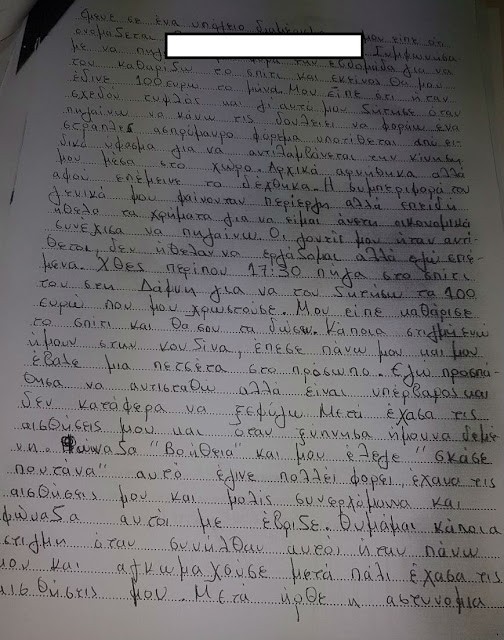 έμενε σε ένα υπόγειο διαμέρισμα μου είπε ότι
ονομάζεται Συμφώνησα
με να πηγαίνω φορά την εβδομάδα για να
του καθαρίζω το σπίτι και εκείνος θα μου
έδινε 100 ευρώ το μήνα. Μου είπε ότι ήταν
σχεδόν τυφλός και γι αυτό μου ζήτησε όταν
πηγαίνω να κάνω τις δουλειές να φοράω ένα
στράπλες ασπρόμαυρο φόρεμα υποτίθεται από ει-
δικό ύφασμα για να αντιλαμβάνεται την κίνηση
μου μέσα στο χώρο. Αρχικά αρνήθηκα αλλά
αφού επέμεινε το δέχθηκα. Η συμπεριφορά του
γενικά μου φαίνονταν περίεργη αλλά επειδή
ήθελα τα χρήματα για να είμαι άνετη οικονομικά
συνέχισα να πηγαίνω. Οι γονείς μου ήταν αντί-
θετοι, δεν ήθελαν να εργάζομαι αλλά εγώ επέ-
μενα. Χθες περίπου 17:30 πήγα στο σπίτι
του στη Δάφνη για να του ζητήσω τα 100
ευρώ που μου χρωστούσε. Μου είπε καθάρισε
το σπίτι και θα σου τα δώσω. Κάποια στιγμή ενώ
ήμουν στην κουζίνα, έπεσε πάνω μου και μου
έβαλε μια πετσέτα στο πρόσωπο. Εγώ προσπά-
θησα να αντισταθώ αλλά είναι υπέρβαρος και
δεν κατάφερα να ξεφύγω. Μετά έχασα τις
αισθήσεις μου και όταν ξύπνησα ήμουνα δεμέ-
νη. Φώναζα "Βοήθεια" και μου έλεγε "σκάσε
πουτάνα" αυτό έγινε πολλές φορές, έχανα τις
αισθήσεις μου και μόλις συνερχόμουνα και
φώναζα αυτός με έβριζε. Θυμάμαι κάποια
στιγμή όταν συνήλθα αυτός ήταν πάνω
μου και αγκωμαχούσε μετά πάλι έχασα τις
αισθήσεις μου. Μετά ήρθε η αστυνομία